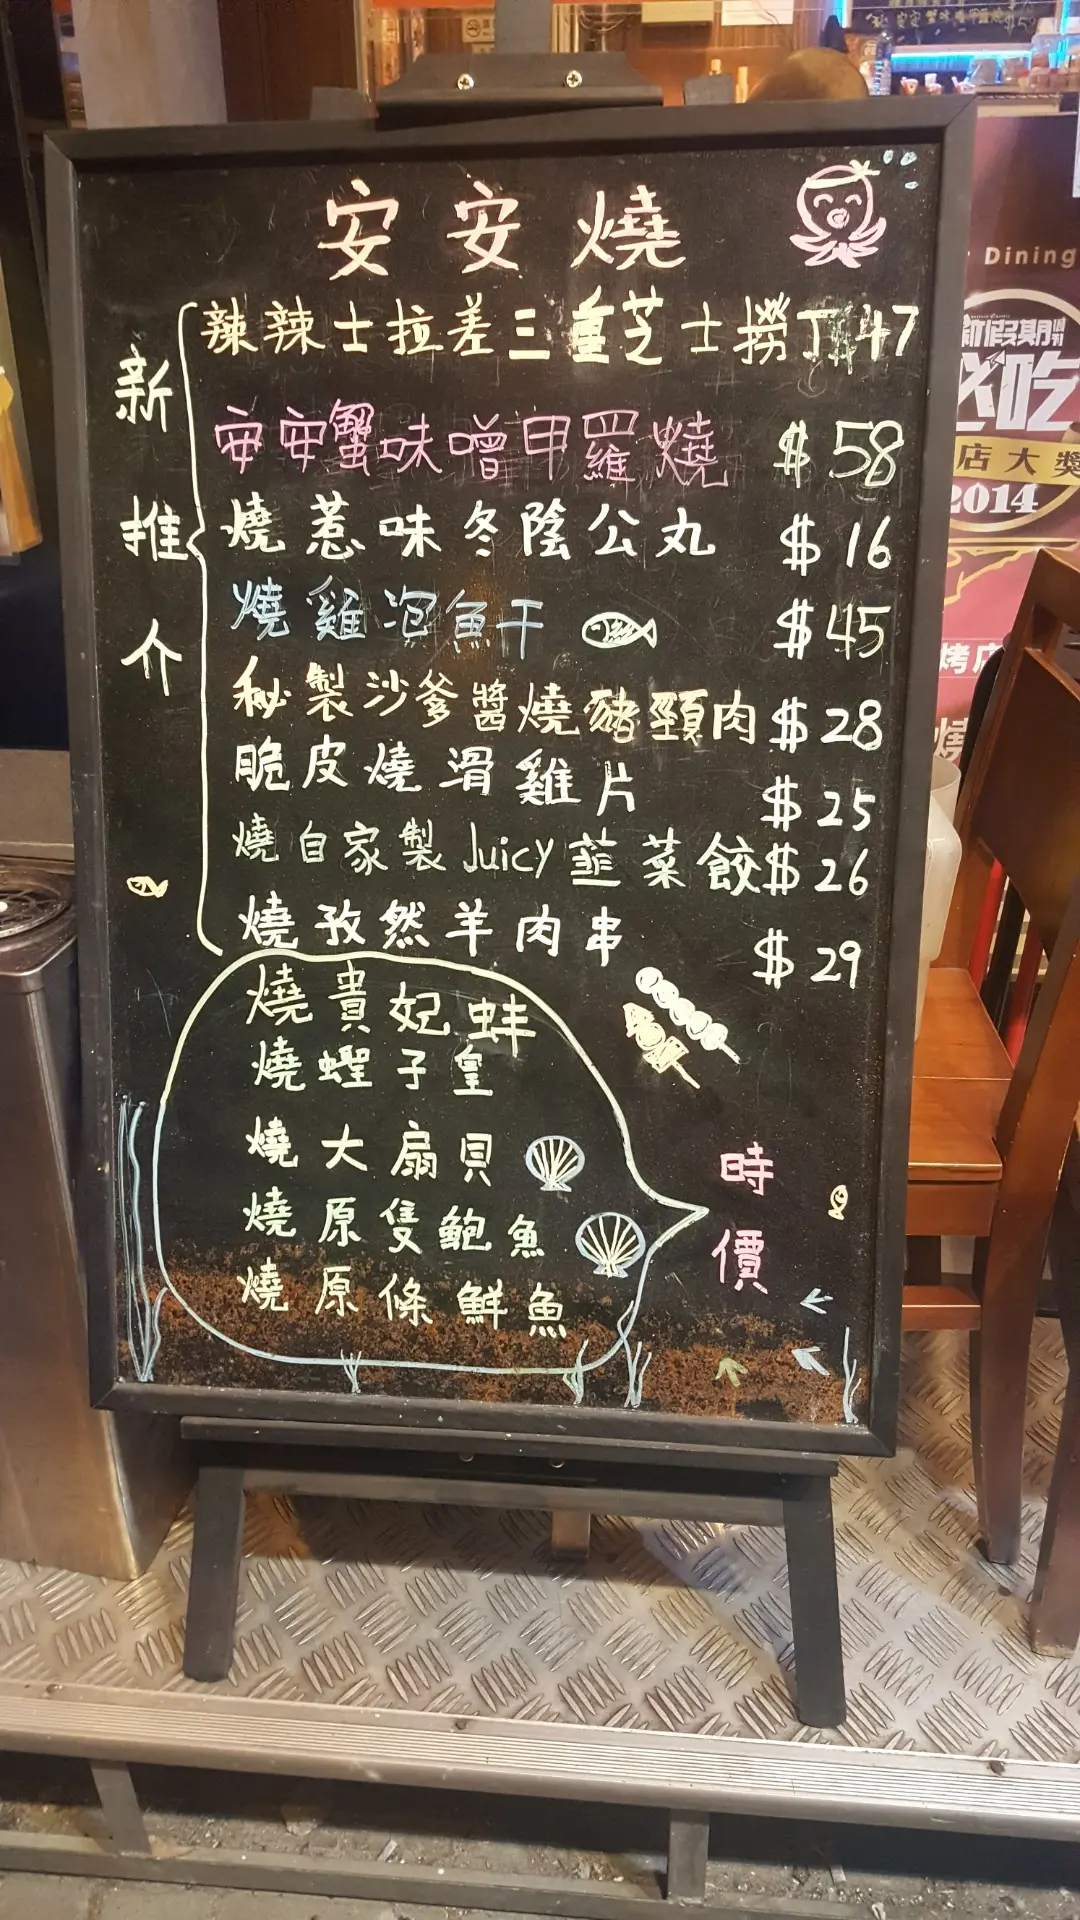 安安燒
新推介
辣辣士拉差三重芝士撈丁 $47
安安蟹味噌甲羅燒 $58
燒惹味冬陰公丸 $16
燒雞泡魚干 $45
秘製沙爹醬燒豬頸肉 $28
脆皮燒滑雞片 $25
燒自家製Juicy韮菜餃 $26
燒孜然羊肉串 $29
燒貴妃蚌
燒蟶子皇
燒大扇貝
燒原隻鮑魚
燒原條鮮魚
時價
Dining
新假期
必吃
店大獎
2014
烤店
燒